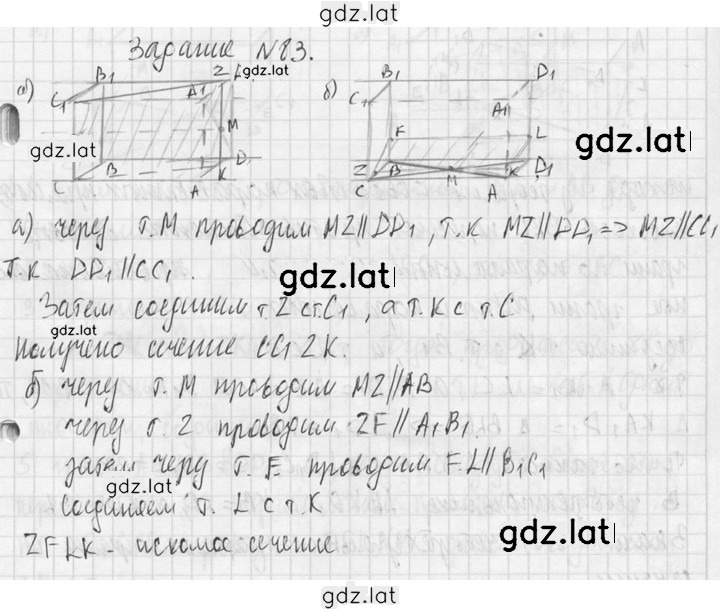 gdz.lat
Задание N83.
gdz.lat
а) B1 Z D1 б) B1 D1
C1 A1 C1 A1
M F L
gdz.lat
gdz.lat
B D Z B D1
C A K C M A K
а) через т.М проводим MZ||DD1, т.к MZ||DD1 => MZ||CC1
т.к DD1||CC1.
gdz.lat
Затем соединим т Z с т.C1, а т.К с т.С
gdz.lat
получено сечение CC1ZK.
б) через т.М проводим MZ||AB
через т.Z проводим ZF||A1B1.
затем через т.F проводим FL||B1C1
gdz.lat
Соединяем т. L с т.К
gdz.lat
ZFLK - искомое сечение
gdz.lat